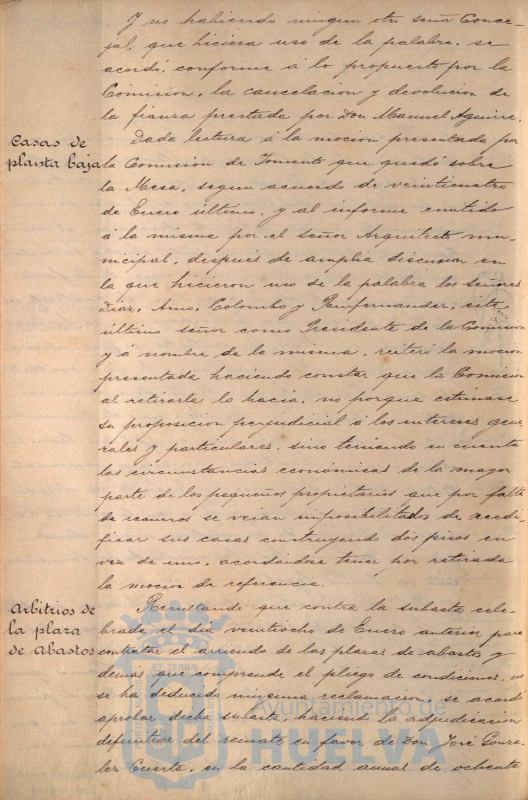 Y no habiendo ningun otro señor Conce-
jal que hiciera uso de la palabra, se
acordó, conforme á lo propuesto por la
Comision, la cancelacion y devolucion de
la fianza prestada por Don Manuel Aguirre.
Casas de
planta baja
Dada lectura á la mocion presentada por
la Comision de Fomento que quedó sobre
la Mesa, segun acuerdo de veinticuatro
de Enero último, y al informe emitido
á la misma por el señor Arquitecto mu-
nicipal, después de amplia discusion en
la que hicieron uso de la palabra los señores
Diaz, Amo, Colombo y este
último señor como Presidente de la Comision
y á nombre de la misma, reiteró la mocion
presentada haciendo constar que la Comision
al retirarla lo hacia, no porque estimase
su proposicion perjudicial á los intereses gene
rales y particulares, sino teniendo en cuenta
las circunstancias económicas de la mayor
parte de los pequeños propietarios que por falta
de recursos se veian imposibilitados de reedi
ficar sus casas construyendo dos pisos en
vez de uno, acordándose tener por retirada
la mocion de referencia.
Arbitrios de
la plaza
de abastos
Resultando que contra la subasta cele-
brada el dia veintiocho de Enero anterior para
contratar el arriendo de las plazas de abastos y
demas que comprende el pliego de condiciones, no
se ha deducido ninguna reclamacion, se acordó
aprobar dicha subasta, haciendo la adjudicacion
definitiva del remate en favor de Don José Gonza
lez Cuesta, en la cantidad anual de ochenta
Ayuntamiento de
HUELVA